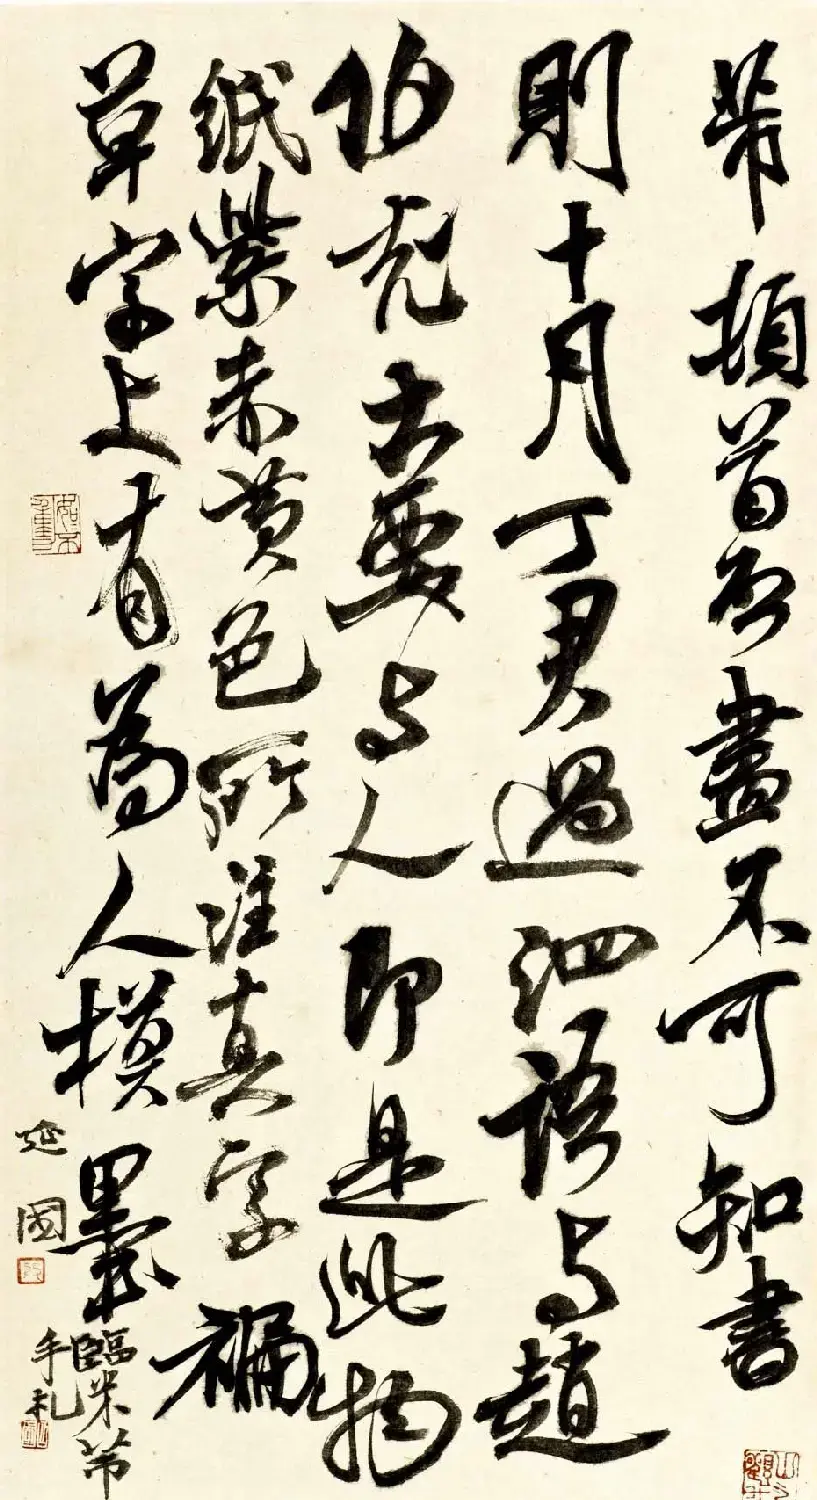 芾頓首啓畫不可知書
則十月丁君過泗語与趙
伯充云要与人即是此物
紙紫赤黃色所注真字褊
草字上有為人模墨
臨米芾
手札